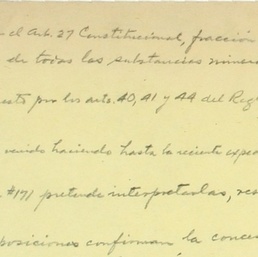 el Art. 27 Constitucional, fracción
de todas las substancias minera
esto por los arts. 40, 41 y 44 del Reg
venido haciendo hasta la reciente exped
#171 pretende interpretarlas, res
posiciones confirman la conces